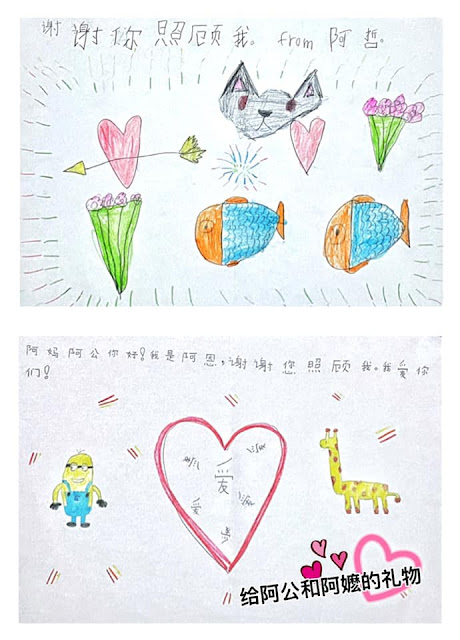 谢谢你照顾我。from 阿哲。
阿妈阿公你好！我是阿恩，谢谢您照顾我。我爱你
们！
爱
爱
给阿公和阿嬷的礼物